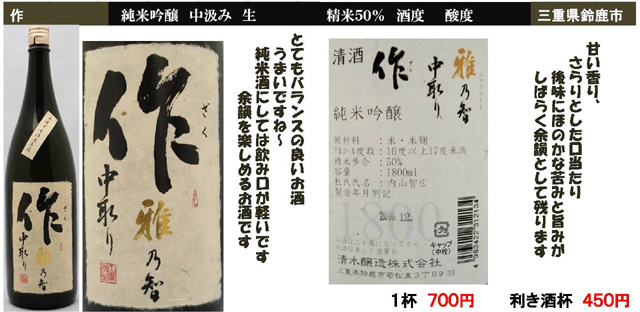 作
純米吟醸 中汲み 生
精米50% 酒度 酸度
三重県鈴鹿市
作
ざく
雅
乃
智
中取り
作
ざく
雅
乃
智
中取り
とてもバランスの良いお酒
うまいですね～
純米酒にしては飲み口が軽いです
余韻を楽しめるお酒です
清酒
作
ざく
雅乃智
中取り
純米吟醸
原材料 : 米・米麹
アルコール度数 : 16度以上17度未満
精米歩合 : 50%
容量 : 1800ml
杜氏氏名 : 内山智広
製造年月別記
1800
12
お酒は二十歳になってから
キャップ
(中栓)
4 982422 312134
清水醸造株式会社
三重県鈴鹿市若松東3丁目9-33
甘い香り、
さらりとした口当たり
後味にほのかな苦みと旨みが
しばらく余韻として残ります
1杯 700円
利き酒杯 450円